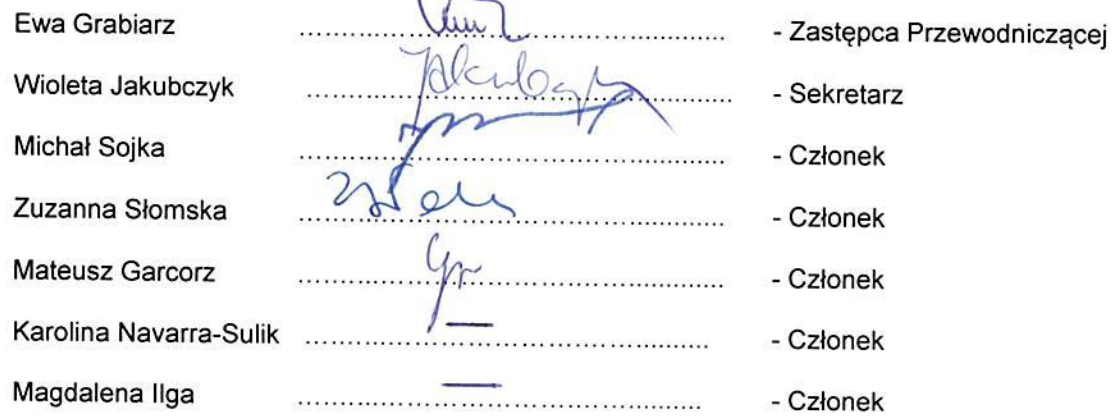 Ewa Grabiarz ........................................ - Zastępca Przewodniczącej
Wioleta Jakubczyk ........................................ - Sekretarz
Michał Sojka ........................................ - Członek
Zuzanna Słomska ........................................ - Członek
Mateusz Garcorz ........................................ - Członek
Karolina Navarra-Sulik ........................................ - Członek
Magdalena Ilga ........................................ - Członek